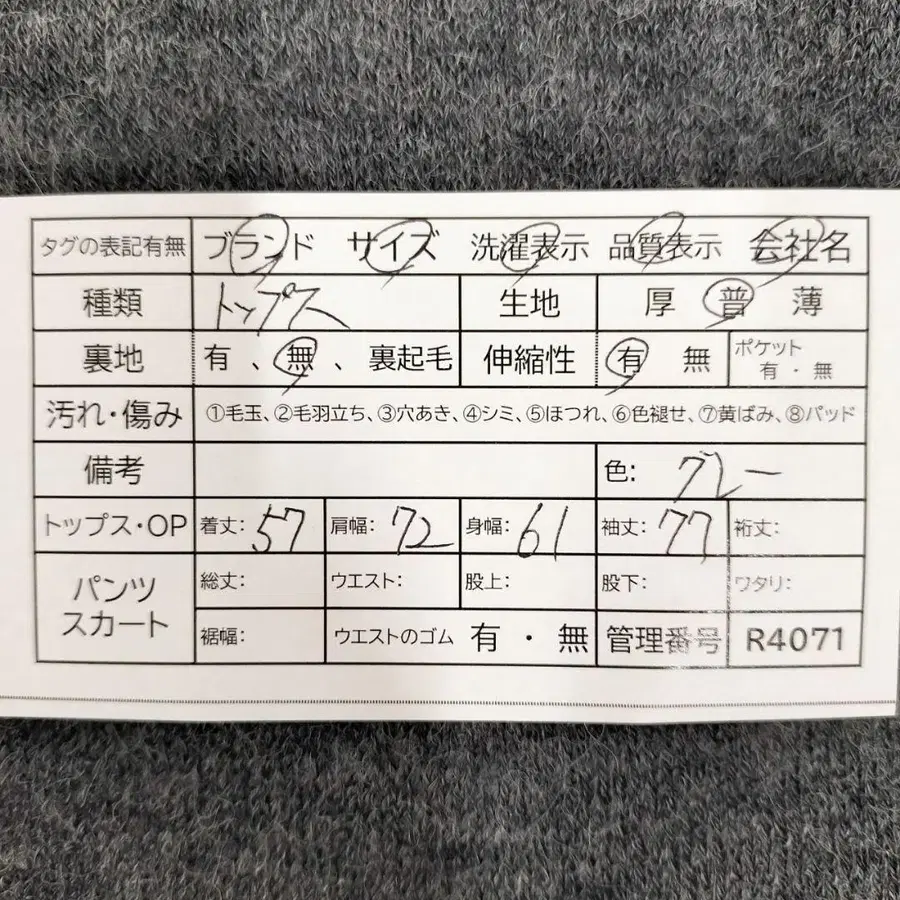 タグの表記有無 ブランド サイズ 洗濯表示 品質表示 会社名
種類 トップス 生地 厚 普 薄
裏地 有、無、裏起毛 伸縮性 有 無 ポケット 有・無
汚れ・傷み ①毛玉、②毛羽立ち、③穴あき、④シミ、⑤ほつれ、⑥色褪せ、⑦黄ばみ、⑧パッド
備考 色: グレー
トップス・OP 着丈: 57 肩幅: 72 身幅: 61 袖丈: 77 裄丈:
パンツ スカート 総丈: ウエスト: 股上: 股下: ワタリ:
裾幅: ウエストのゴム 有・無 管理番号 R4071